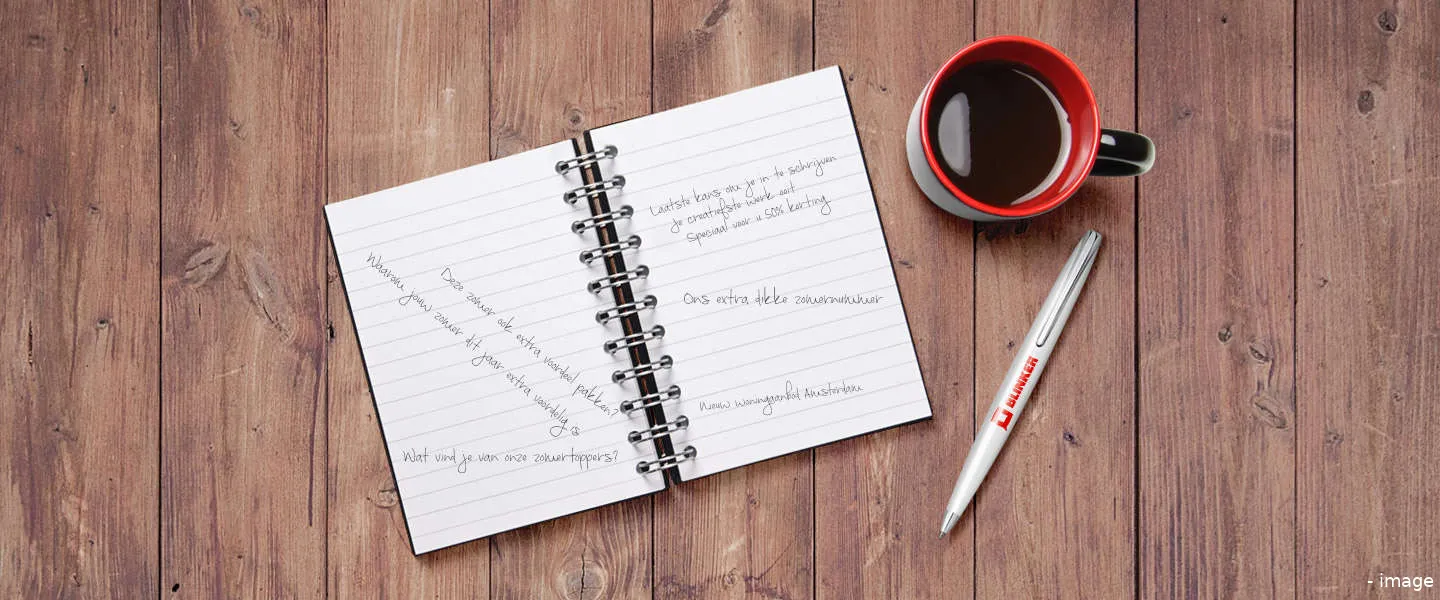 Waarom jouw zomer dit jaar extra voordelig is
Deze zomer ook extra voordeel pakken?
Wat vind je van onze zomertoppers?
Laatste kans om je in te schrijven
Je creatiefste werk ooit
Speciaal voor u 50% korting
Ons extra dikke zomernummer
Nieuw woningaanbod Amsterdam
BLINKER
- image